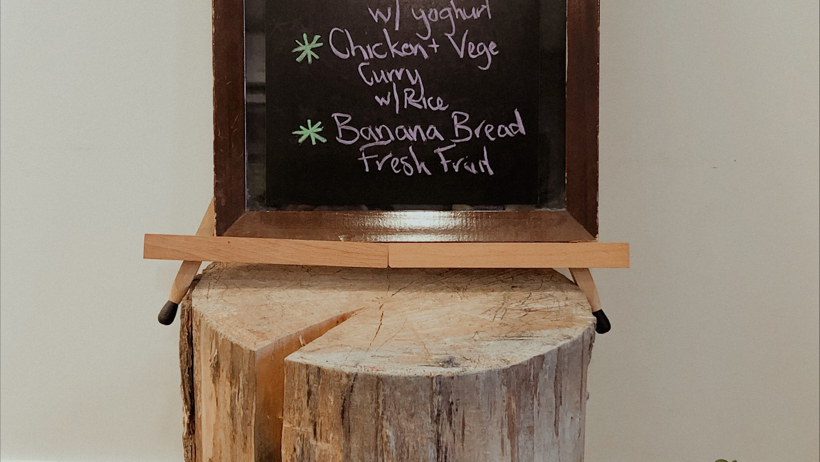 w/ yoghurt
* Chicken + Vege
Curry
w/ Rice
* Banana Bread
Fresh Fruit